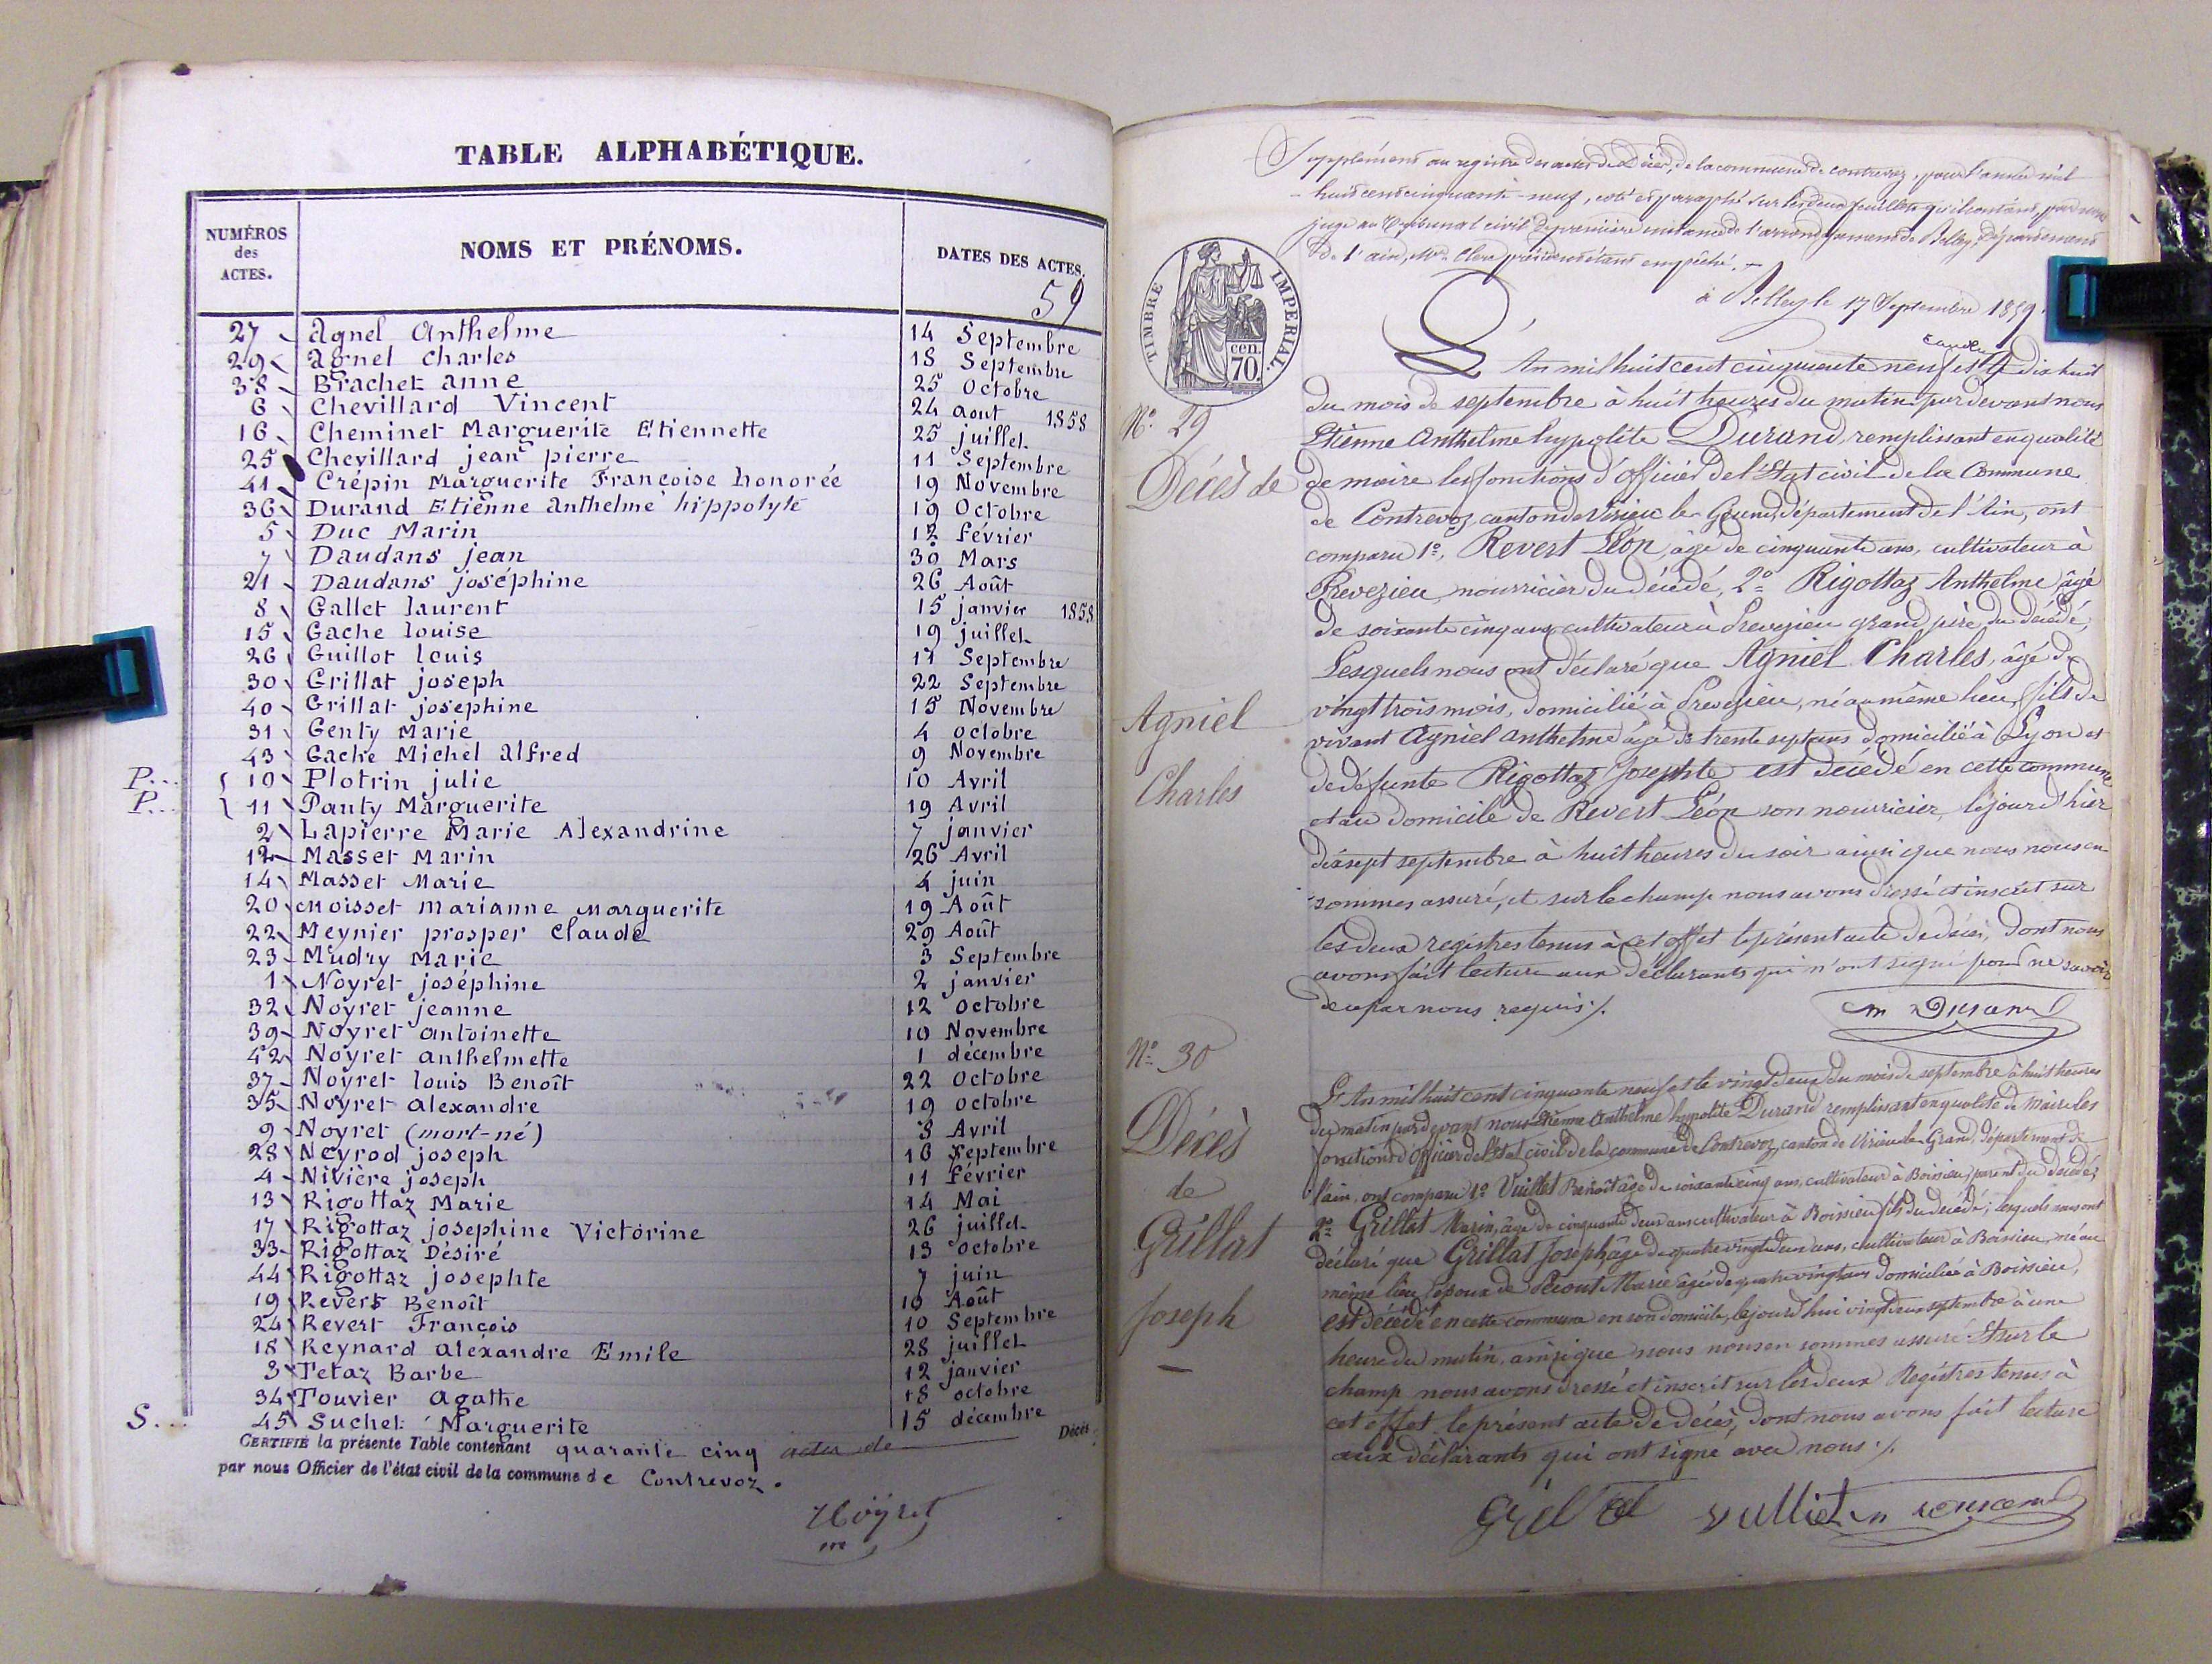 TABLE ALPHABÉTIQUE.
NUMÉROS des ACTES.
NOMS ET PRÉNOMS.
DATES DES ACTES.
59
27 Agnel Anthelme 14 Septembre
29 Agnel Charles 18 Septembre
38 Brachet anne 25 Octobre
6 Chevillard Vincent 24 aout 1858
16 Cheminet Marguerite Etiennette 25 juillet
25 Chevillard jean pierre 11 Septembre
41 Crépin Marguerite Françoise honorée 19 Novembre
36 Durand Etienne anthelme hippolyte 19 Octobre
5 Duc Marin 12 février
7 Daudans jean 30 Mars
21 Daudans joséphine 26 Août
8 Gallet laurent 15 janvier 1858
15 Gache louise 19 juillet
26 Guillot louis 11 Septembre
30 Grillat joseph 22 Septembre
40 Grillat josephine 15 Novembre
31 Genty Marie 4 octobre
43 Gache Michel alfred 9 Novembre
P... 10 Plotrin julie 10 Avril
P... 11 Panty Marguerite 19 Avril
2 Lapierre Marie Alexandrine 7 janvier
12 Masset Marin 26 Avril
14 Masset Marie 4 juin
20 Moisset marianne marguerite 19 Août
22 Meynier prosper Claude 29 Août
23 Mudry Marie 3 Septembre
1 Noyret joséphine 2 janvier
32 Noyret jeanne 12 octobre
39 Noyret antoinette 10 Novembre
42 Noyret anthelmette 1 décembre
37 Noyret louis Benoît 22 Octobre
35 Noyret alexandre 19 octobre
9 Noyret (mort-né) 3 Avril
28 Neyrod joseph 16 Septembre
4 Nivière joseph 11 février
13 Rigottaz Marie 14 Mai
17 Rigottaz josephine Victorine 26 juillet
33 Rigottaz Désiré 13 octobre
44 Rigottaz josephte 7 juin
19 Revert Benoît 10 Août
24 Revert François 10 Septembre
18 Reynard alexandre Emile 28 juillet
3 Tetaz Barbe 12 janvier
34 Touvier agathe 18 octobre
S... 45 Suchet Marguerite 15 décembre
CERTIFIÉ la présente Table contenant quarante cinq actes de Décès
par nous Officier de l'état civil de la commune de Contrevoz.
Noyret
m
Supplément au registre des actes de Décès, de la commune de contrevoz, pour l'année mil
huit cent cinquante-neuf, coté et paraphé sur les deux feuillets qu'il contient, par nous
juge au Tribunal civil de première instance de l'arrondissement de Belley, département
de l'ain, Mr. Clerc président étant empêché.
à Belley le 17 Septembre 1859.
TIMBRE IMPÉRIAL.
cen. 70.
L'An mil huit cent cinquante neuf et le dix huit
No. 29
du mois de septembre à huit heures du matin pardevant nous
Etienne Anthelme hypolite Durand, remplissant en qualité
Décès de
de maire les fonctions d'officier de l'Etat civil de la Commune
de Contrevoz, canton de Virieu le Grand, département de l'Ain, ont
comparu 1o. Revert Léon, âgé de cinquante ans, cultivateur à
Prevezieu, nourricier du décédé, 2o Rigottaz Anthelme, âgé
de soixante cinq ans, cultivateur à Prevezieu grand père du décédé,
Lesquels nous ont déclaré que Agniel Charles, âgé de
Agniel
Charles
vingt trois mois, domicilié à Prevezieu, né au même lieu, fils de
vivant Agniel Anthelme âgé de trente sept ans domicilié à Lyon et
de défunte Rigottaz Josephte est décédé en cette commune
et au domicile de Revert Léon son nourricier, le jour d'hier
dix sept septembre à huit heures du soir ainsi que nous nous en
sommes assuré, et sur le champ nous avons dressé et inscrit sur
les deux registres tenus à cet effet le présent acte de décès, dont nous
avons fait lecture aux déclarants qui n'ont signé pour ne savoir
de ce par nous requis ./.
m Durand
No. 30
L'An mil huit cent cinquante neuf et le vingt deux du mois de septembre à huit heures
Décès
de
Grillat
Joseph
du matin pardevant nous Etienne Anthelme hypolite Durand remplissant en qualité de maire les
fonctions d'officier de l'Etat civil de la commune de Contrevoz, canton de Virieu le Grand, département de
l'ain, ont comparu 1o Vuillet Benoît âgé de soixante cinq ans, cultivateur à Boissieu, parent du décédé,
2o Grillat Marin, âgé de cinquante deux ans cultivateur à Boissieu fils du décédé; lesquels nous ont
déclaré que Grillat Joseph âgé de quatre vingt deux ans, cultivateur à Boissieu, né au
même lieu, époux de Marie âgée de quatre vingt ans domiciliée à Boissieu,
est décédé en cette commune en son domicile, le jour d'hui vingt deux septembre à une
heure du matin, ainsi que nous nous en sommes assuré. Et sur le
champ nous avons dressé et inscrit sur les deux Registres tenus à
cet effet le présent acte de décès, dont nous avons fait lecture
aux déclarants qui ont signé avec nous ./.
Grillat vulliet m Durand